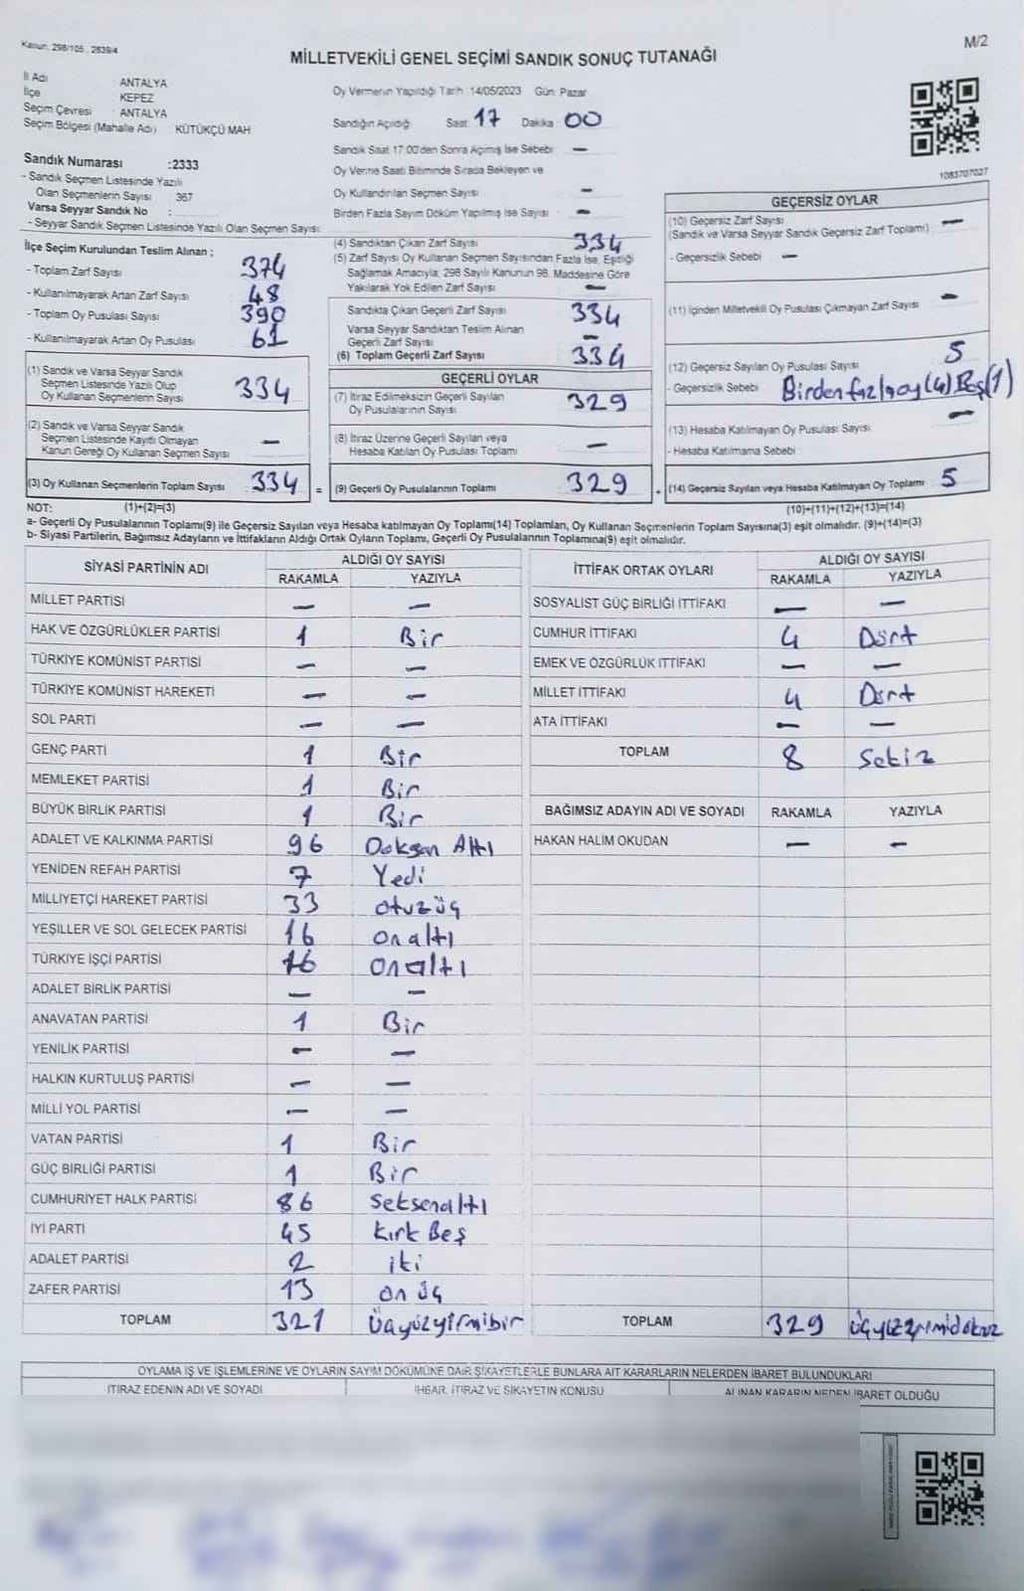 Kanun: 298/105, 2839/4
M/2
MİLLETVEKİLİ GENEL SEÇİMİ SANDIK SONUÇ TUTANAĞI
İl Adı ANTALYA
İlçe KEPEZ
Seçim Çevresi ANTALYA
Seçim Bölgesi (Mahalle Adı) KÜTÜKÇÜ MAH
Sandık Numarası :2333
- Sandık Seçmen Listesinde Yazılı
Olan Seçmenlerin Sayısı 367
Varsa Seyyar Sandık No :
- Seyyar Sandık Seçmen Listesinde Yazılı Olan Seçmen Sayısı:
Oy Vermenin Yapıldığı Tarih: 14/05/2023 Gün: Pazar
Sandığın Açıldığı Saat 17 Dakika 00
Sandık Saat 17:00'den Sonra Açılmış İse Sebebi —
Oy Verme Saati Bitiminde Sırada Bekleyen ve
Oy Kullandırılan Seçmen Sayısı —
Birden Fazla Sayım Döküm Yapılmış İse Sayısı —
1083707027
İlçe Seçim Kurulundan Teslim Alınan ;
- Toplam Zarf Sayısı 374
- Kullanılmayarak Artan Zarf Sayısı 48
- Toplam Oy Pusulası Sayısı 390
- Kullanılmayarak Artan Oy Pusulası 61
(1) Sandık ve Varsa Seyyar Sandık
Seçmen Listesinde Yazılı Olup
Oy Kullanan Seçmenlerin Sayısı 334
(2) Sandık ve Varsa Seyyar Sandık
Seçmen Listesinde Kayıtlı Olmayan
Kanun Gereği Oy Kullanan Seçmen Sayısı —
(3) Oy Kullanan Seçmenlerin Toplam Sayısı 334 =
(4) Sandıktan Çıkan Zarf Sayısı 334
(5) Zarf Sayısı Oy Kullanan Seçmen Sayısından Fazla İse, Eşitliği
Sağlamak Amacıyla, 298 Sayılı Kanunun 98. Maddesine Göre
Yakılarak Yok Edilen Zarf Sayısı —
Sandıkta Çıkan Geçerli Zarf Sayısı 334
Varsa Seyyar Sandıktan Teslim Alınan
Geçerli Zarf Sayısı —
(6) Toplam Geçerli Zarf Sayısı 334
GEÇERLİ OYLAR
(7) İtiraz Edilmeksizin Geçerli Sayılan
Oy Pusulalarının Sayısı 329
(8) İtiraz Üzerine Geçerli Sayılan veya
Hesaba Katılan Oy Pusulası Toplamı —
(9) Geçerli Oy Pusulalarının Toplamı 329 +
GEÇERSİZ OYLAR
(10) Geçersiz Zarf Sayısı —
(Sandık ve Varsa Seyyar Sandık Geçersiz Zarf Toplamı)
- Geçersizlik Sebebi —
(11) İçinden Milletvekili Oy Pusulası Çıkmayan Zarf Sayısı —
(12) Geçersiz Sayılan Oy Pusulası Sayısı 5
- Geçersizlik Sebebi Birden fazla oy (4) Boş (1)
(13) Hesaba Katılmayan Oy Pusulası Sayısı —
- Hesaba Katılmama Sebebi
(14) Geçersiz Sayılan veya Hesaba Katılmayan Oy Toplamı 5
NOT: (1)+(2)=(3) (10)+(11)+(12)+(13)=(14)
a- Geçerli Oy Pusulalarının Toplamı(9) ile Geçersiz Sayılan veya Hesaba katılmayan Oy Toplamı(14) Toplamları, Oy Kullanan Seçmenlerin Toplam Sayısına(3) eşit olmalıdır. (9)+(14)=(3)
b- Siyasi Partilerin, Bağımsız Adayların ve İttifakların Aldığı Ortak Oyların Toplamı, Geçerli Oy Pusulalarının Toplamına(9) eşit olmalıdır.
SİYASİ PARTİNİN ADI ALDIĞI OY SAYISI
RAKAMLA YAZIYLA
MİLLET PARTİSİ — —
HAK VE ÖZGÜRLÜKLER PARTİSİ 1 Bir
TÜRKİYE KOMÜNİST PARTİSİ — —
TÜRKİYE KOMÜNİST HAREKETİ — —
SOL PARTİ — —
GENÇ PARTİ 1 Bir
MEMLEKET PARTİSİ 1 Bir
BÜYÜK BİRLİK PARTİSİ 1 Bir
ADALET VE KALKINMA PARTİSİ 96 Doksan Altı
YENİDEN REFAH PARTİSİ 7 Yedi
MİLLİYETÇİ HAREKET PARTİSİ 33 otuzüç
YEŞİLLER VE SOL GELECEK PARTİSİ 16 onaltı
TÜRKİYE İŞÇİ PARTİSİ 16 onaltı
ADALET BİRLİK PARTİSİ — —
ANAVATAN PARTİSİ 1 Bir
YENİLİK PARTİSİ — —
HALKIN KURTULUŞ PARTİSİ — —
MİLLİ YOL PARTİSİ — —
VATAN PARTİSİ 1 Bir
GÜÇ BİRLİĞİ PARTİSİ 1 Bir
CUMHURİYET HALK PARTİSİ 86 seksenaltı
İYİ PARTİ 45 kırk Beş
ADALET PARTİSİ 2 iki
ZAFER PARTİSİ 13 on üç
TOPLAM 321 üçyüzyirmibir
İTTİFAK ORTAK OYLARI ALDIĞI OY SAYISI
RAKAMLA YAZIYLA
SOSYALİST GÜÇ BİRLİĞİ İTTİFAKI — —
CUMHUR İTTİFAKI 4 Dört
EMEK VE ÖZGÜRLÜK İTTİFAKI — —
MİLLET İTTİFAKI 4 Dört
ATA İTTİFAKI — —
TOPLAM 8 Sekiz
BAĞIMSIZ ADAYIN ADI VE SOYADI RAKAMLA YAZIYLA
HAKAN HALİM OKUDAN — —
TOPLAM 329 üçyüzyirmidokuz
OYLAMA İŞ VE İŞLEMLERİNE VE OYLARIN SAYIM DÖKÜMÜNE DAİR ŞİKAYETLERLE BUNLARA AİT KARARLARIN NELERDEN İBARET BULUNDUKLARI
İTİRAZ EDENİN ADI VE SOYADI İHBAR, İTİRAZ VE ŞİKAYETİN KONUSU ALINAN KARARIN NEDEN İBARET OLDUĞU